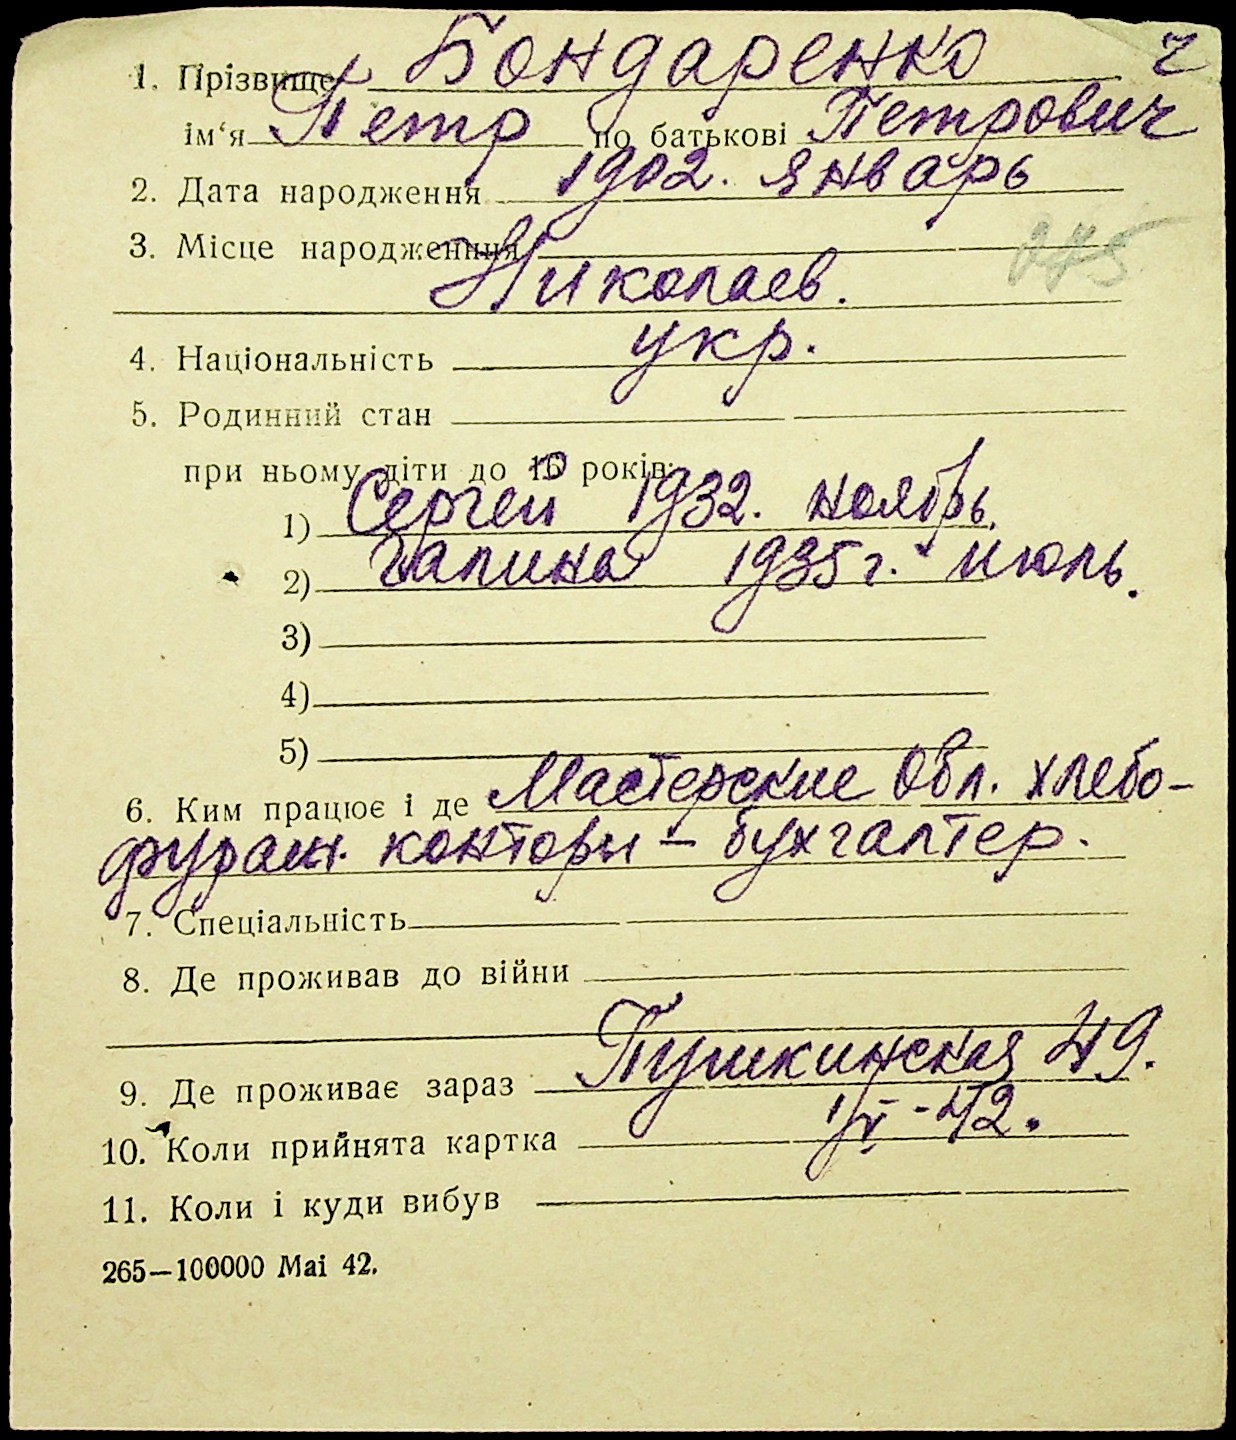 1. Прізвище Бондаренко ч
ім‘я Петр по батькові Петрович
2. Дата народження 1902. январь
3. Місце народження 275
Николаев.
4. Національність укр.
5. Родинний стан
при ньому діти до 16 років:
1) Сергей 1932. ноябрь.
2) Галина 1935 г. июль.
3)
4)
5)
6. Ким працює і де Мастерские Обл. хлебо-
фураж. конторы – бухгалтер.
7. Спеціальність
8. Де проживав до війни
9. Де проживає зараз Пушкинская 49.
10. Коли прийнята картка 1/VI - 42.
11. Коли і куди вибув
265—100000 Mai 42.